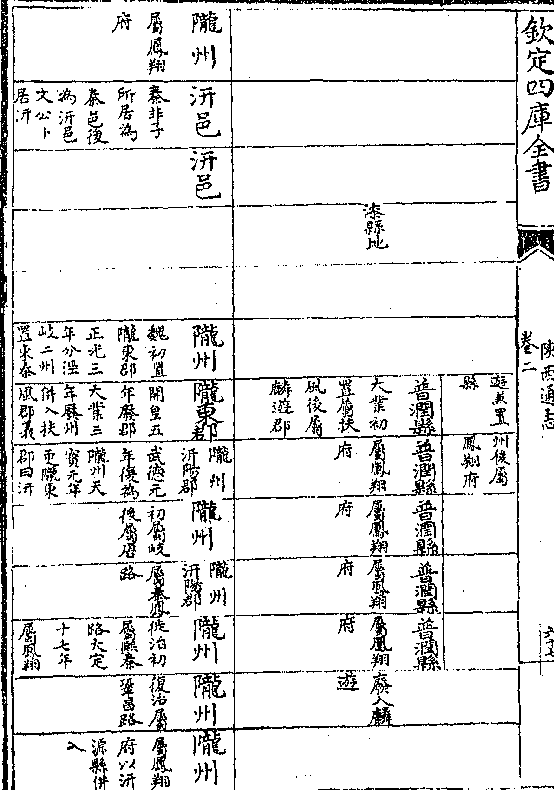 欽定四庫全書
陝西通志
卷二
遊義置
縣
州後屬
鳳翔府
漆縣地
普潤縣
大業初
置屬扶
風後屬
麟遊郡
普潤縣
屬鳳翔
府
普潤縣
屬鳳翔
府
普潤縣
屬鳳翔
府
普潤縣
屬鳳翔
府
廢入麟
遊
隴州
屬鳳翔
府
汧邑
秦非子
所居為
秦邑後
為汧邑
文公卜
居汧
汧邑
隴州
魏初置
隴東郡
正光三
年分涇
岐二州
置東秦
隴東郡
開皇五
年廢郡
大業三
年廢州
併入扶
風郡義
隴州
汧陽郡
武德元
年復為
隴州天
寶元年
更隴東
郡曰汧
隴州
初屬岐
後屬唐
隴州
汧陽郡
屬秦鳳
路
隴州
皇初
屬熙秦
路大定
十七年
屬鳳翔
隴州
復治屬
鞏昌路
隴州
屬鳳翔
府以汧
源縣併
入